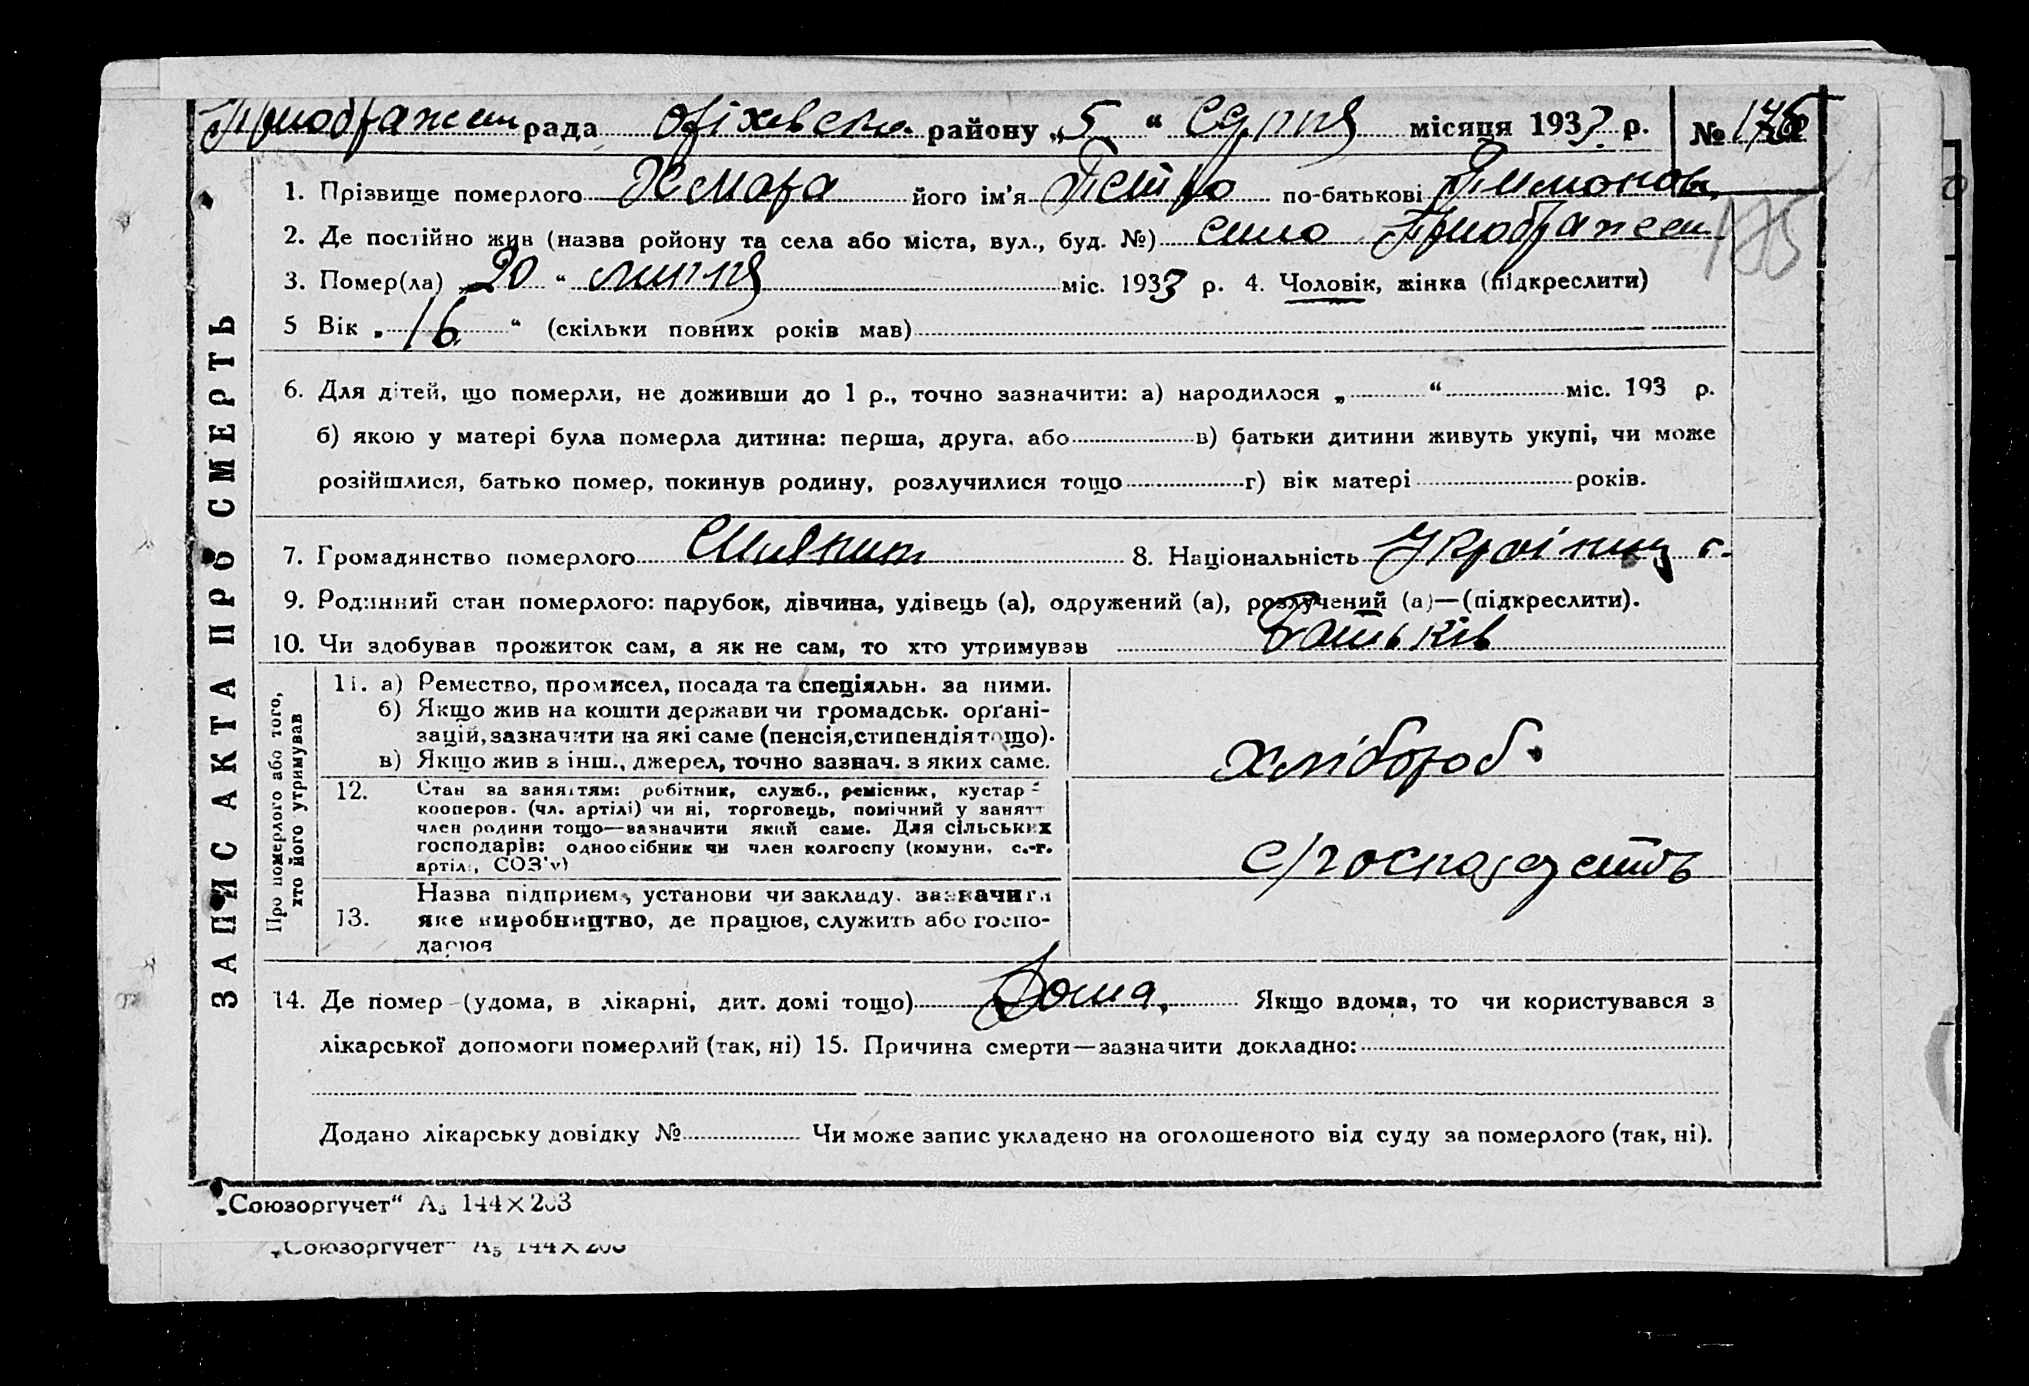 Приображен рада Оріхівсько району „5“ Серпня місяця 1933 р. № 175
1. Прізвище померлого Хмара його ім'я Петро по-батькові Тимонов.
175
2. Де постійно жив (назва ройону та села або міста, вул., буд. №) село Приображен
3. Помер(ла) „20“ липня міс. 1933 р. 4. Чоловік, жінка (підкреслити)
5 Вік „16“ (скільки повних років мав)
6. Для дітей, що померли, не доживши до 1 р., точно зазначити: а) народилося „ “ міс. 193 р.
б) якою у матері була померла дитина: перша, друга, або в) батьки дитини живуть укупі, чи може
розійшлися, батько помер, покинув родину, розлучилися тощо г) вік матері років.
7. Громадянство померлого 8. Національність Україн
9. Родинний стан померлого: парубок, дівчина, удівець (а), одружений (а), розлучений (а)—(підкреслити).
10. Чи здобував прожиток сам, а як не сам, то хто утримував Батьків
ЗАПИС АКТА ПРО СМЕРТЬ
Про померлого або того,
хто його утримував
11. а) Ремество, промисел, посада та спеціяльн. за ними.
б) Якщо жив на кошти держави чи громадськ. орґані-
зацій, зазначити на які саме (пенсія, стипендія тощо).
в) Якщо жив з інш., джерел, точно зазнач. з яких саме.
Хлібороб.
12. Стан за заняттям: робітник, служб., ремісник, кустар
кооперов. (чл. артілі) чи ні, торговець, помічний у занятт
член родини тощо—зазначити який саме. Для сільських
господарів: одноосібник чи член колгоспу (комуни, с.-г.
артілі, СОЗ'у)
с/господарсть
13. Назва підприєм., установи чи закладу, зазначити
яке виробництво, де працює, служить або госпо-
дарює
14. Де помер (удома, в лікарні, дит. домі тощо) Дома, Якщо вдома, то чи користувався з
лікарської допомоги померлий (так, ні) 15. Причина смерти—зазначити докладно:
Додано лікарську довідку № Чи може запис укладено на оголошеного від суду за померлого (так, ні).
„Союзоргучет“ А5 144×203
„Союзоргучет“ А5 144×203